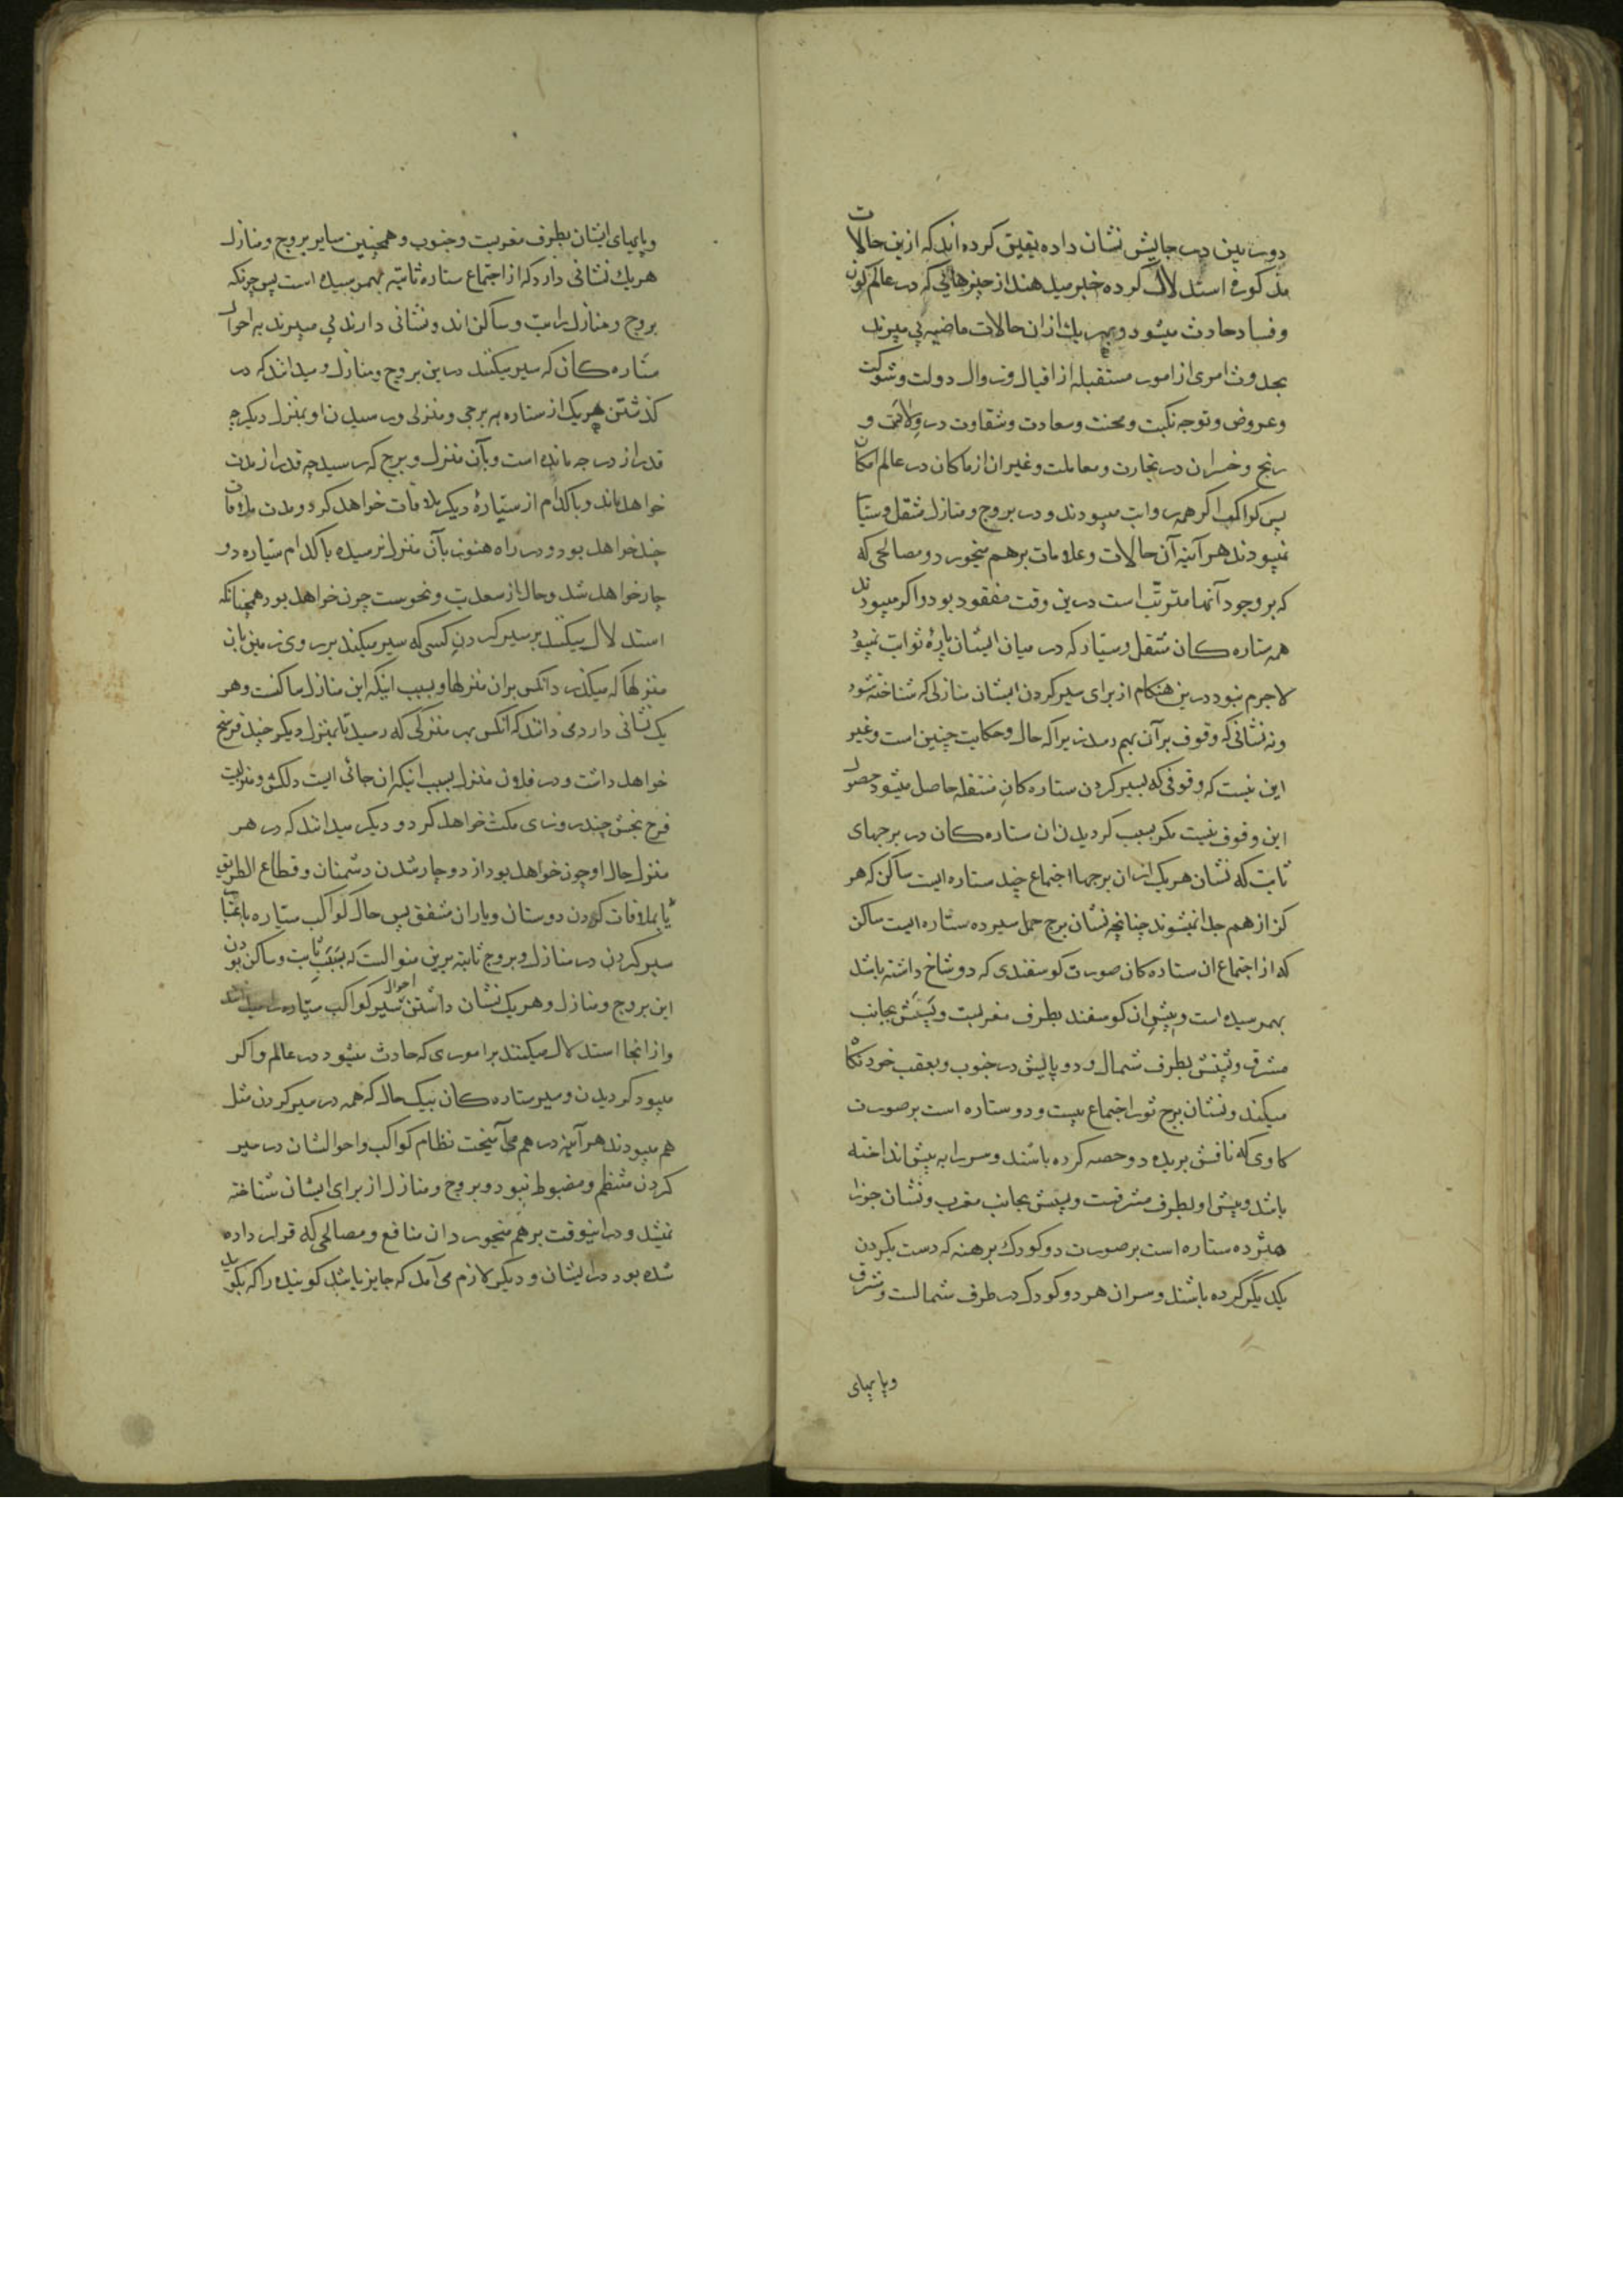 دوربین درجایش نشان داده یقین کرده‌اند که ازین حالات
مذکوره استدلال کرده خبر میدهند از چیزهائی که در عالم کون
و فساد حادث میشود و بهریك ازان حالات ماضیه پی میبرند
بحدوث امری از امور مستقبله از اقبال و زوال دولت و شوکت
و عروض و توجه نکبت و محنت و سعادت و شقاوت در ولادت و
رنج و خسران در تجارت و معاملت و غیر ان از ماکان در عالم امکان
پس کواکب اگر همه رواتب میبودند و در بروج و منازل منتقل و سیار
نمیبودند هر آینه آن حالات و علامات برهم میخورد و مصالحی که
که بر وجود آنها مترتب است درین وقت مفقود بود و اگر میبودند
همه ستاره کان منتقل و سیار که در میان ایشان پارهٔ ثوابت نمیبود
لاجرم نبود درین هنکام از برای سیر کردن ایشان منازلی که شناخته شود
و نه نشانی که وقوف بر آن بهم رسد زیرا که حال و حکایت چنین است و غیر
این نیست که وقوفی که بسیر کردن ستاره کان منتقله حاصل میشود حصول
این وقوف نیست مکر بسبب کردیدن ان ستاره کان در برجهای
ثابت که نشان هریک ازان برجها اجتماع چند ستاره ایست ساکن که هر
کز از هم جدا نمیشوند چنانچه نشان برج حمل سیزده ستاره ایست ساکن
که از اجتماع ان ستاره کان صورت کوسفندی که دو شاخ داشته باشد
بهمرسیده است و پیش ان کوسفند بطرف مغربست و پسش بجانب
مشرق و پشتش بطرف شمال و دو پایش در جنوب و بعقب خود نکاه
میکند و نشان برج ثور اجتماع بیست و دو ستاره است بر صورت
کاوی که نافش بریده دو حصه کرده باشند و سر را به پیش انداخته
باشد و پیش او بطرف مشرقست و پسش بجانب مغرب و نشان جوزا
هیژده ستاره است بر صورت دو کودك برهنه که دست بکردن
یکدیگر کرده باشند و سر ان هر دو کودک در طرف شمالست و مشرق
و پاهای
و پاهای ایشان بطرف مغربست و جنوب و همچنین سایر بروج و منازل
هریك نشانی دارد که از اجتماع ستاره ثابته بهمرسیده است پس چونکه
بروج و منازل راتب و ساکن اند و نشانی دارند پی میبرند به احوال
ستاره کان که سیر میکنند درین بروج و منازل و میدانند که در
کذشتن هریک از ستاره به برجی و منزلی و رسیدن او بمنزل دیکر چه
قدر از درجه مانده است و بآن منزل و برج که رسید چه قدر از مدت
خواهد ماند و باکدام از سیارهٔ دیکر ملاقات خواهد کرد و مدت ملاقات
چند خواهد بود و در راه هنوز بآن منزل نرسیده باکدام سیاره دو
چار خواهد شد و حال از سعدیت و نحوست چون خواهد بود همچنانکه
استدلال میکنند بر سیر کردن کسی که سیر میکند بر روی زمین بان
منزلها که میکذرد انکس بران منزلها و بسبب اینکه این منازل ساکنست و هر
یک نشانی دارد می دانند که آنکس بهر منزلی که رسید تا بمنزل دیکر چند فرسخ
خواهد داشت و در فلان منزل بسبب اینکه ان جائی ایست دلکش و منزلیست
فرح بخش چند روزی مکث خواهد کرد و دیکر میدانند که در هر
منزل حال او چون خواهد بود از دوچار شدن دشمنان و قطاع الطریق
یا بملاقات کردن دوستان و یاران مشفق پس حال کواکب سیاره باعتبار
سیر کردن در منازل و بروج ثابته برین منوالست که بسبب ثابت و ساکن بودن
این بروج و منازل و هریک نشان داشتن احوال سیر کواکب سیاره را میدانند
و از انجا استدلال میکنند بر اموری که حادث میشود در عالم و اکر
میبود کردیدن و سیر ستاره کان بیک حال که همه در سیر کردن مثل
هم میبودند هر آینه درهم می آمیخت نظام کواکب و احوالشان در سیر
کردن منتظم و مضبوط نبود و بروج و منازل از برای ایشان شناخته
نمیشد و درانیوقت برهم میخورد ان منافع و مصالحی که قرار داده
شده بود در ایشان و دیکر لازم می آمد که جایز باشد کوینده را که بکوید